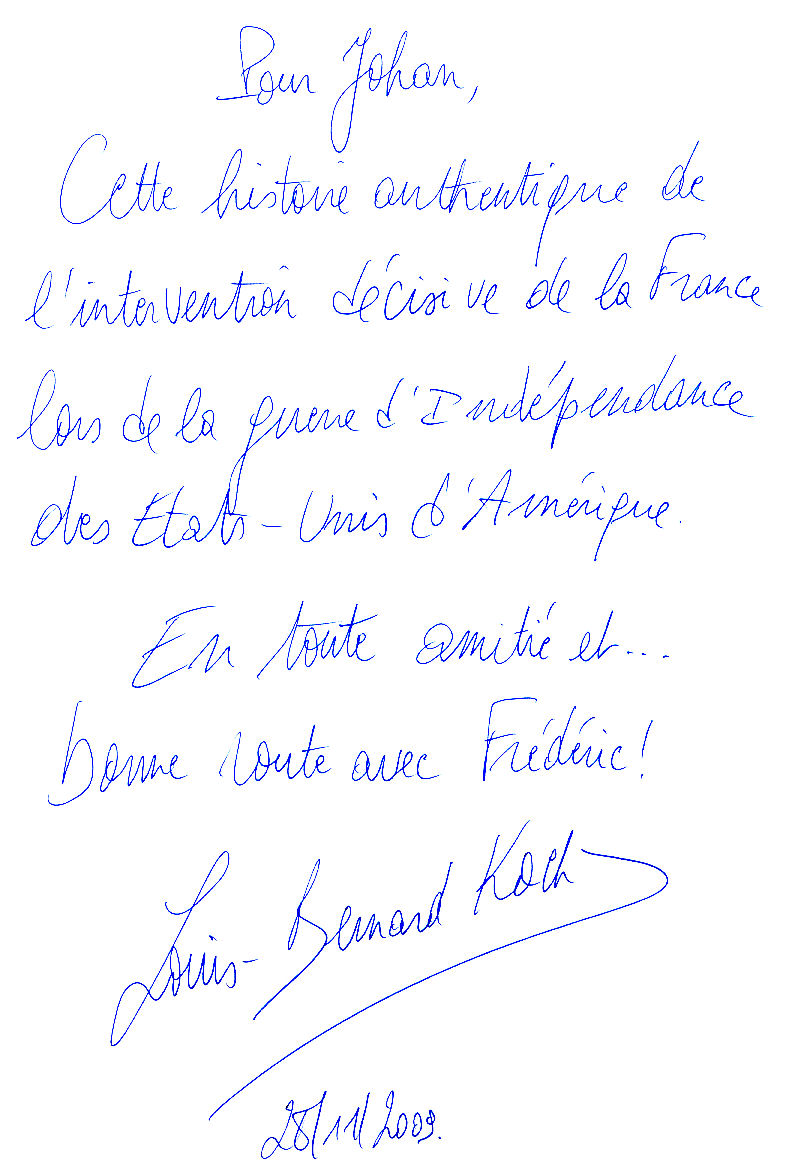 Pour Johan,
Cette histoire authentique de
l'intervention décisive de la France
lors de la guerre d'Indépendance
des Etats-Unis d'Amérique.
En toute amitié et...
bonne route avec Frédéric!
Louis-Bernard Koch
28/11/2009.